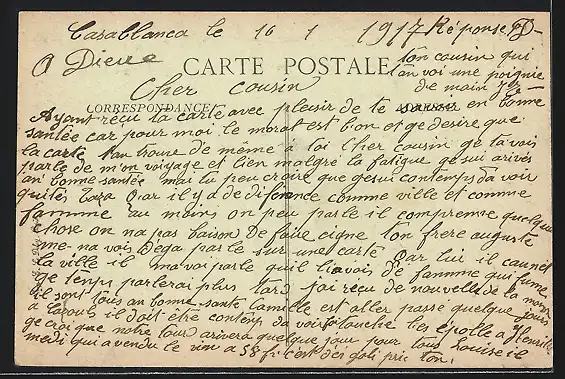 Casablanca le 16 1 1917 Réponse SD-
a Dieue
ton cousin qui
t'an voi une poignie
de main
CARTE POSTALE
Cher cousin
CORRESPONDANCE
Ayant réçu ta carte avec plaisir de te savoir en bonne
santée car pour moi le moral est bon et ge desire que
la carte tan trouve de même a toi Cher cousin ge ta vais
parle de m'on voyage et bien malgré la fatigue ge sui arivés
an bonne santée mai tu peu croire que ge sui contemps d'a voir
quités Taza Car il y a de diference comme ville et comme
famme au moins on peu parle il comprenne quelque
chose on na pas baison de faire cigne ton frere auguste
me na vois Dega parle sur une carte Car lui il connei
la ville il ma voi parle quil liavais de fammme qui fume
ge temps parlerai plus tard jai reçu de nouvelle de la
il sont tous an bonne santé Camelle est aller passé quelque jours
a il doit être contemp da voir touche
ge croi que notre tourd arivera quelque jour pour tous Louise il
medi qui a vendu le vin a 58 fr c'est dés joli prie ton.